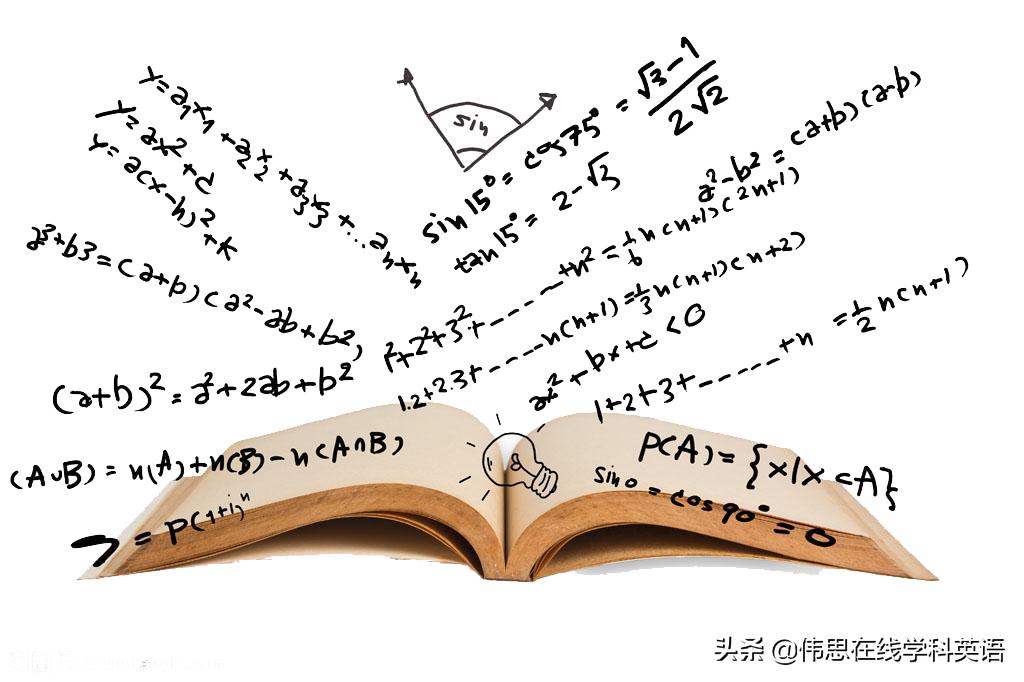 Y=a₁x₁+a₂x₂+a₃x₃+...aₙxₙ
Y=ax²+c
Y=a(x-h)²+k
sin
sin15°=cos75°=(√3-1)/(2√2)
tan15°=2-√3
a²-b²=(a+b)(a-b)
a³+b3=(a+b)(a²-ab+b2,
1²+2²+3²+------+n²=1/6n(n+1)(2n+1)
1.2+2.3+-----n(n+1)=1/3n(n+1)(n+2)
ax²+bx+c<0
1+2+3+-----+n=1/2n(n+1)
(a+b)²=a²+2ab+b²
(A∪B)=n(A)+n(B)-n(A∩B)
P(A)={x|x⊂A}
sin0=cos90°=0
=P(1+i)ⁿ
头条 @伟思在线学科英语